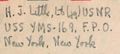 H. J. Little, Lt (jg) USNR
USS YMS-169, F.P.O.
New York, New York